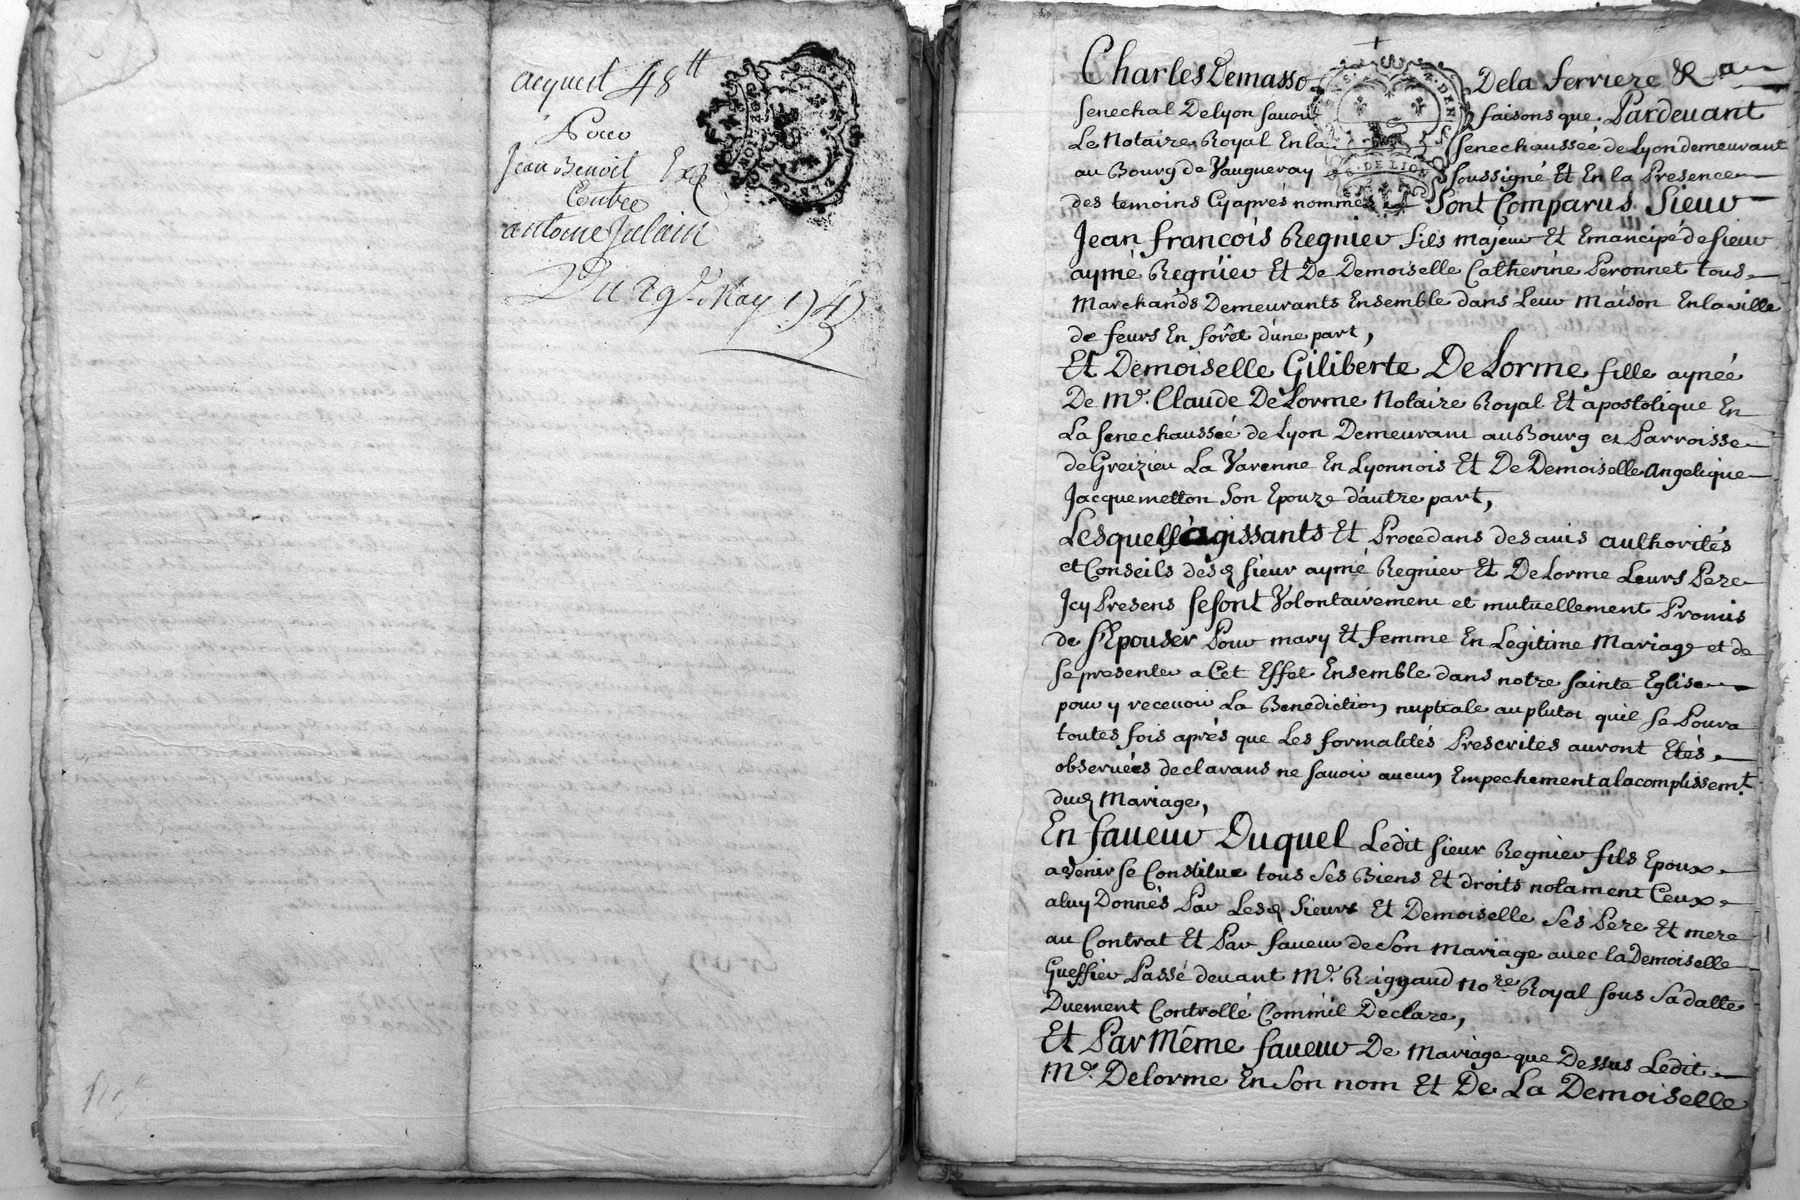 acquit 48ᵗᵗ
Pour
Jean Benoit
Contre
antoine Julain
Du 29ᵉ May 1747
Charles Demasso Dela ferriere &
senechal De Lyon savoir faisons que Pardevant
Le Notaire Royal En la senechaussée de Lyon demeurant
au Bourg de Vaugneray soussigné Et En la Presence
des temoins Cyaprés nommés Sont Comparus Sieur
Jean françois Regnier fils majeur Et Emancipé de sieur
aymé Regnier Et De Demoiselle Catherine Peronnet tous
marchands Demeurants Ensemble dans leur maison En la ville
de feurs En forêt d'une part,
Et Demoiselle Giliberte De Lorme fille aynée
De mᵉ. Claude De Lorme Notaire Royal Et apostolique En
La senechaussée de Lyon Demeurant au Bourg et Parroisse
de Greizieu La Varenne En Lyonnois Et De Demoiselle Angelique
Jacquemetton Son Epouze d'autre part,
Lesquels agissants Et Procedans des avis authorités
et Conseils desd sieur aymé Regnier Et De Lorme Leurs Pere
Jcy Presens se sont Volontairement et mutuellement Promis
de s'Epouser Pour mary Et femme En Legitime Mariage et de
se presenter a Cet Effet Ensemble dans notre sainte Eglise
pour y recevoir La Benediction nuptiale au plutot qu'il se Poura
toutes fois aprés que Les formalités Prescrites auront Etés
observées declarans ne savoir aucun Empechement a lacomplissemᵗ.
dud Mariage,
En faveur Duquel Ledit sieur Regnier fils Epoux
avenir se Constitue tous Ses Biens Et droits notament Ceux
a luy Donnés Par Lesd Sieurs Et Demoiselle Ses Pere Et mere
au Contrat Et Par faveur de Son mariage avec la Demoiselle
Gueffier Passé devant Mᵉ. Rignaud noʳᵉ Royal sous Sa datte
Duement Controllé Comm'il Declare,
Et Par Même faveur De mariage que Dessus Ledit
Mᵉ. Delorme En Son nom Et De La Demoiselle